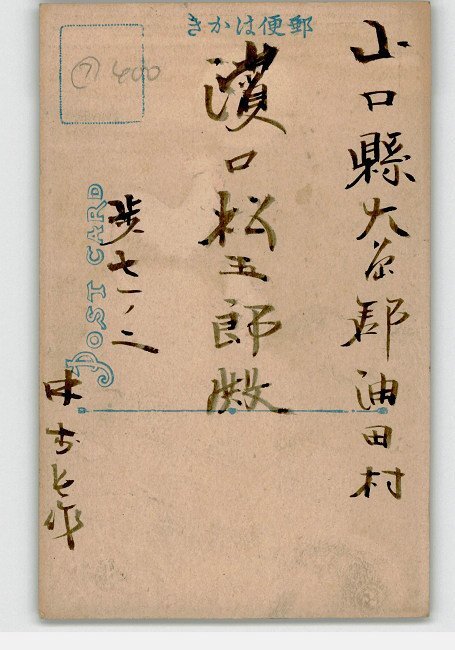 きかは便郵
山口縣大島郡油田村
濱口松五郎殿
歩七一ノ二
作
POST CARD
⑦ 400